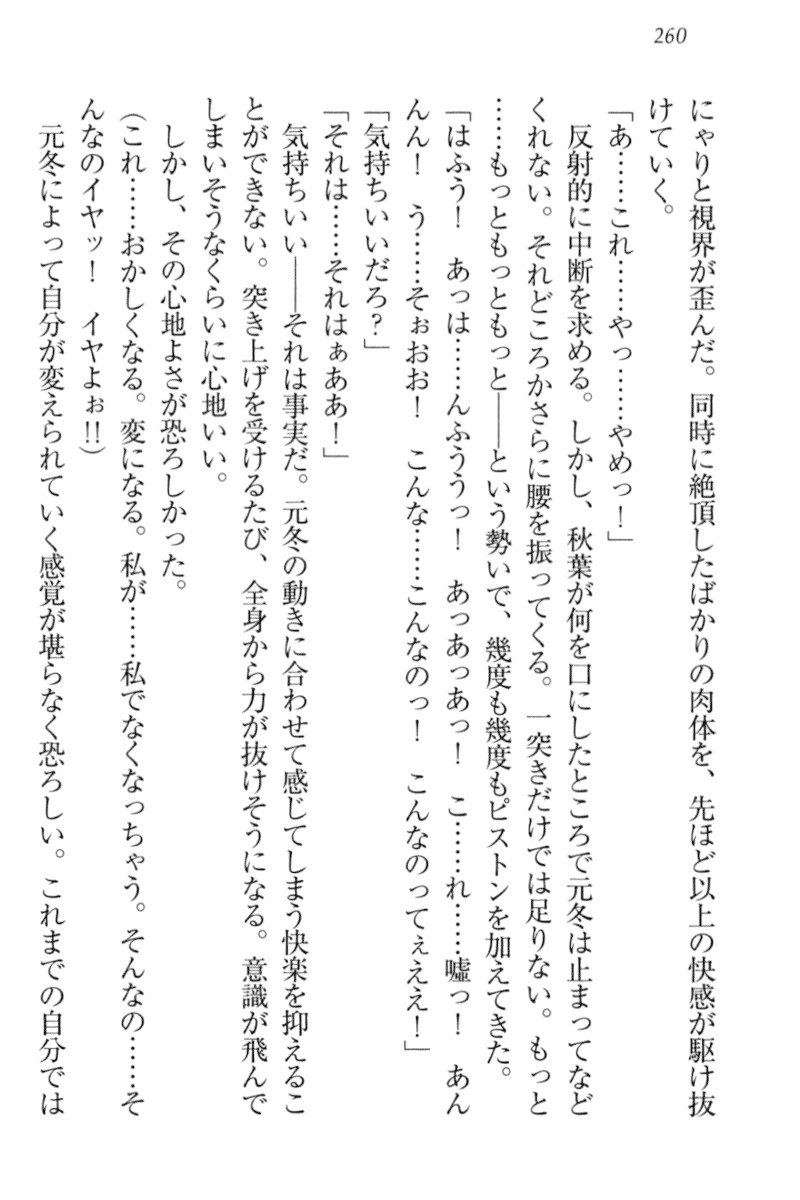 260
にゃりと視界が歪んだ。同時に絶頂したばかりの肉体を、先ほど以上の快感が駆け抜
けていく。
「あ……これ……やっ……やめっ！」
反射的に中断を求める。しかし、秋葉が何を口にしたところで元冬は止まってなど
くれない。それどころかさらに腰を振ってくる。一突きだけでは足りない。もっと
……もっともっともっと――という勢いで、幾度も幾度もピストンを加えてきた。
「はふう！　あっは……んふううっ！　あっあっあっ！　こ……れ……嘘っ！　あん
んん！　う……そぉおお！　こんな……こんなのっ！　こんなのってぇええ！」
「気持ちいいだろ？」
「それは……それはぁああ！」
気持ちいい――それは事実だ。元冬の動きに合わせて感じてしまう快楽を抑えるこ
とができない。突き上げを受けるたび、全身から力が抜けそうになる。意識が飛んで
しまいそうなくらいに心地いい。
しかし、その心地よさが恐ろしかった。
（これ……おかしくなる。変になる。私が……私でなくなっちゃう。そんなの……そ
んなのイヤッ！　イヤよぉ!!）
元冬によって自分が変えられていく感覚が堪らなく恐ろしい。これまでの自分では